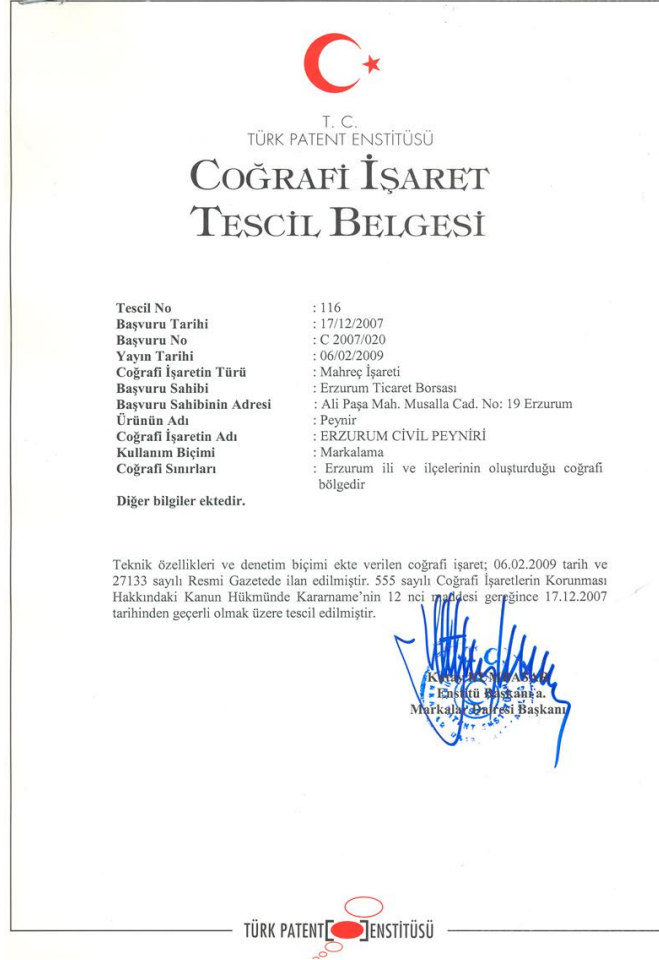 T. C.
TÜRK PATENT ENSTİTÜSÜ
COĞRAFİ İŞARET
TESCİL BELGESİ
Tescil No : 116
Başvuru Tarihi : 17/12/2007
Başvuru No : C 2007/020
Yayın Tarihi : 06/02/2009
Coğrafi İşaretin Türü : Mahreç İşareti
Başvuru Sahibi : Erzurum Ticaret Borsası
Başvuru Sahibinin Adresi : Ali Paşa Mah. Musalla Cad. No: 19 Erzurum
Ürünün Adı : Peynir
Coğrafi İşaretin Adı : ERZURUM CİVİL PEYNİRİ
Kullanım Biçimi : Markalama
Coğrafi Sınırları : Erzurum ili ve ilçelerinin oluşturduğu coğrafi
bölgedir
Diğer bilgiler ektedir.
Teknik özellikleri ve denetim biçimi ekte verilen coğrafi işaret; 06.02.2009 tarih ve
27133 sayılı Resmi Gazetede ilan edilmiştir. 555 sayılı Coğrafi İşaretlerin Korunması
Hakkındaki Kanun Hükmünde Kararname'nin 12 nci maddesi gereğince 17.12.2007
tarihinden geçerli olmak üzere tescil edilmiştir.
Enstitü Başkanı a.
Markalar Dairesi Başkanı
TÜRK PATENT ENSTİTÜSÜ